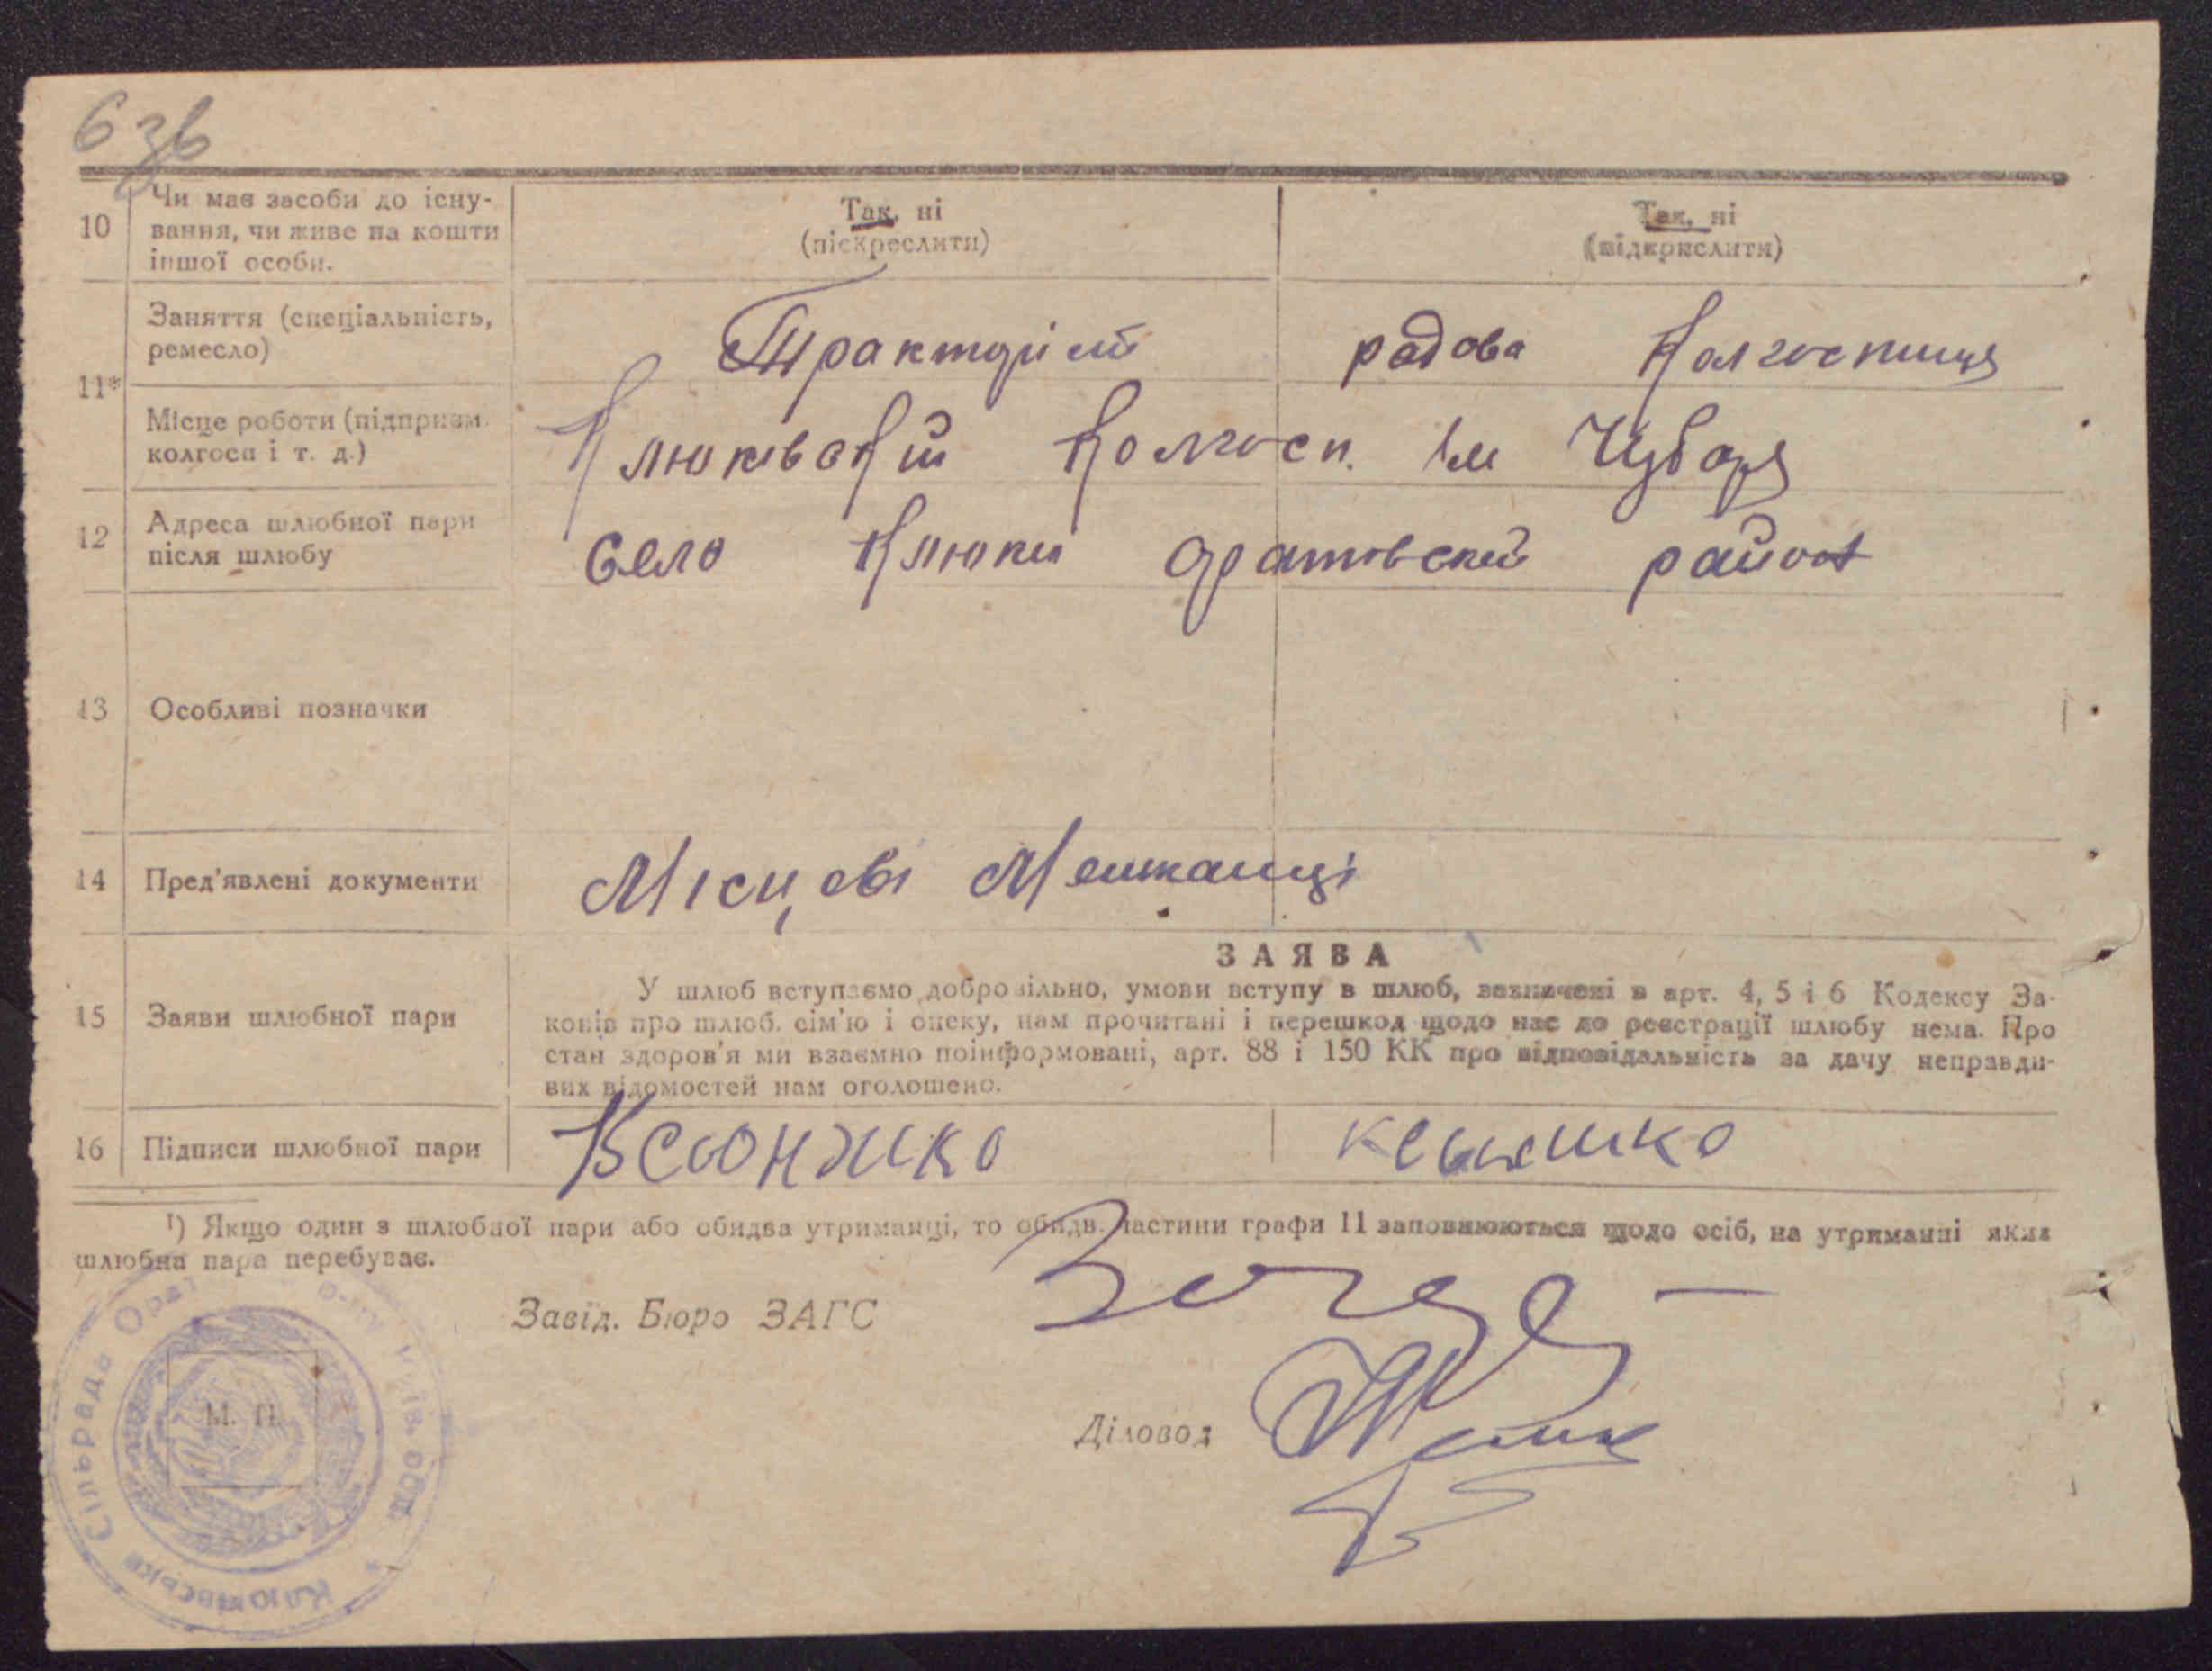 636
10 Чи має засоби до існу-
вання, чи живе на кошти
іншої особи.
Так, ні
(піскреслити)
Так, ні
(відкрислити)
11*
Заняття (спеціальність,
ремесло)
Тракторіст
радова Колгоспниця
Місце роботи (підприєм.
колгосп і т. д.)
Клюківский Колгосп. Ім Чубаря
12 Адреса шлюбної пари
після шлюбу
Село Клюки Оратовский район
13 Особливі позначки
14 Пред'явлені документи
Місцеві Мешканці
15 Заяви шлюбної пари
ЗАЯВА
У шлюб вступаємо добровільно, умови вступу в шлюб, зазначені в арт. 4, 5 і 6 Кодексу За-
конів про шлюб. сім'ю і опеку, нам прочитані і перешкод щодо нас до реєстрації шлюбу нема. Про
стан здоров'я ми взаємно поінформовані, арт. 88 і 150 КК про відповідальність за дачу неправди-
вих відомостей нам оголошено.
16 Підписи шлюбної пари
1) Якщо один з шлюбної пари або обидва утриманці, то обидв. частини графи 11 заповнюються щодо осіб, на утриманні яких
шлюбна пара перебуває.
Завід. Бюро ЗАГС
М. П.
Діловод
Клюківська Сільрада